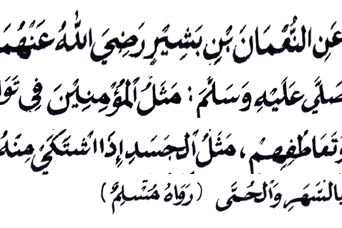 عَنِ النُّعْمَانَ بْنِ بَشِيْرٍ رَضِيَ اللهُ عَنْهُمَ
صَلَّى عَلَيْهِ وَسَلَّمَ : مَثَلُ الْمُؤْمِنِيْنَ فِي تَوَا
وَتَعَاطُفِهِمْ ، مَثَلُ الْجَسَدِ إِذَا اشْتَكَى مِنْهُ
بِالسَّهَرِ وَالْحُمَّى (رَوَاهُ مُسْلِمٌ)